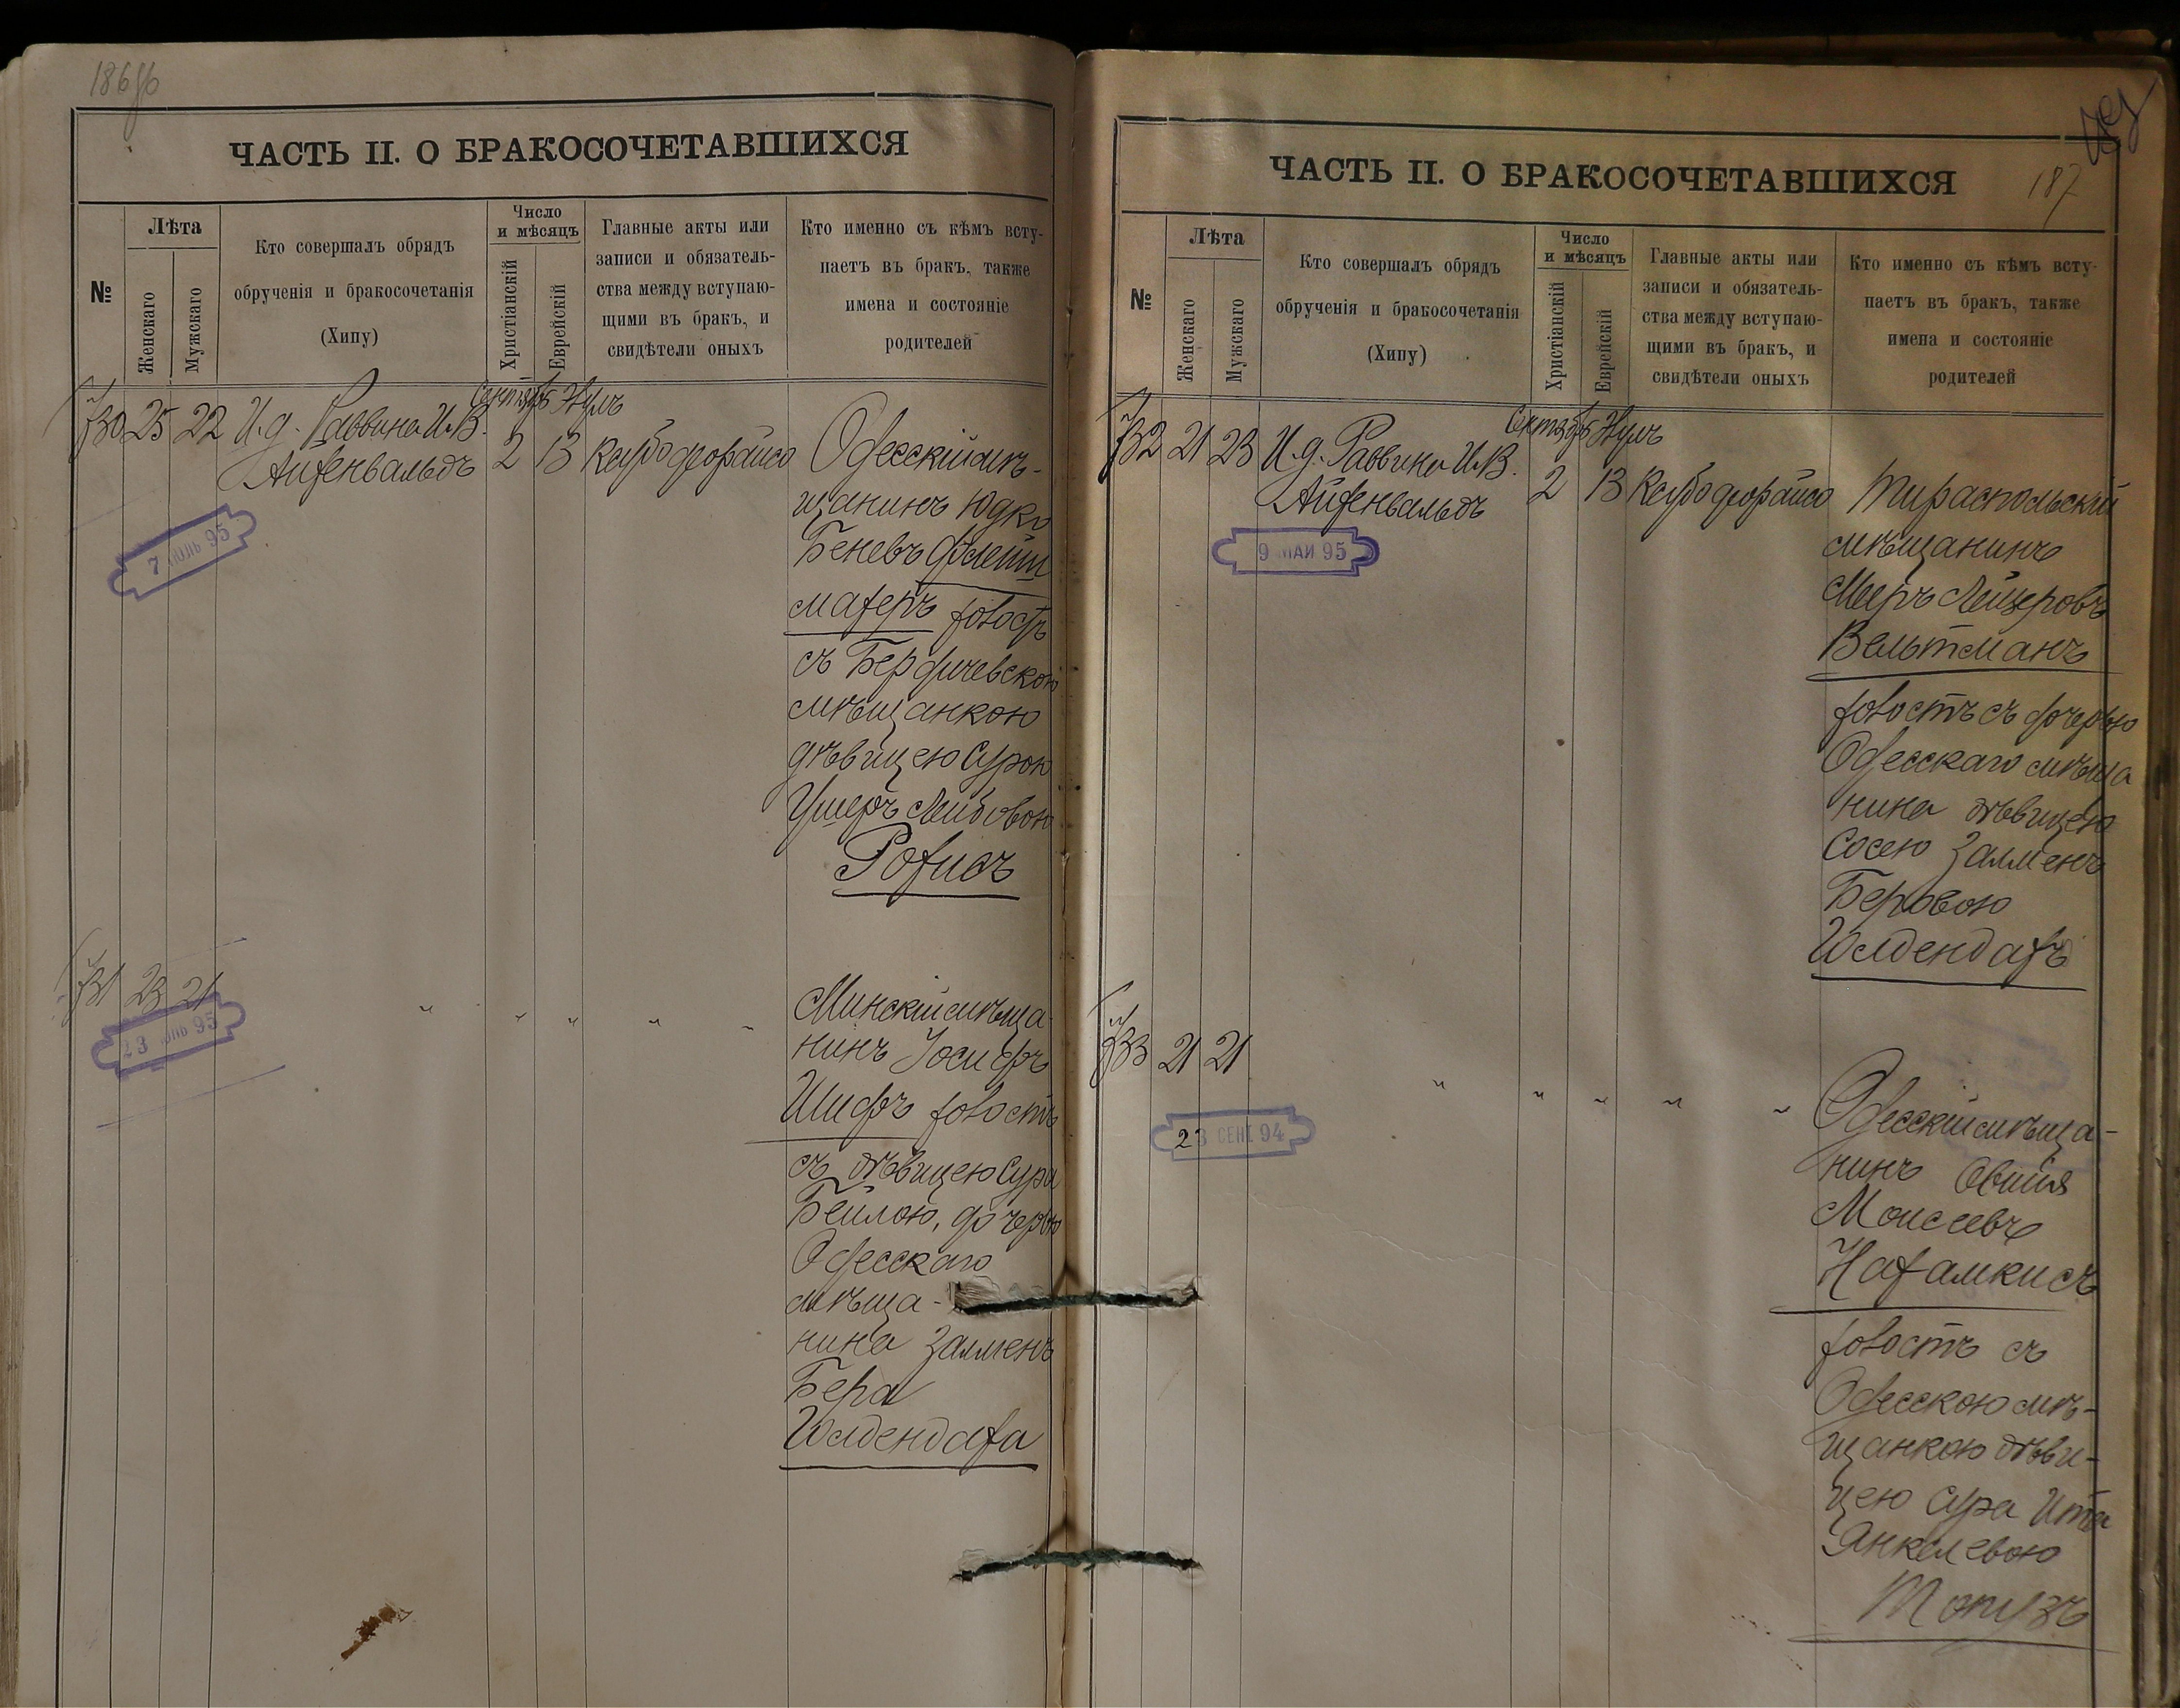 186
ЧАСТЬ II. О БРАКОСОЧЕТАВШИХСЯ
№
Лѣта
Женскаго
Мужскаго
Кто совершалъ обрядъ
обрученія и бракосочетанія
(Хипу)
Число
и мѣсяцъ
Христіанскій
Еврейскій
Главные акты или
записи и обязатель-
ства между вступаю-
щими въ бракъ, и
свидѣтели оныхъ
Кто именно съ кѣмъ всту-
паетъ въ бракъ, также
имена и состояніе
родителей
730 25 22 И.д. Раввина И.В.
Айзенвальдъ
Сентябрь
2 13
Одесскій мѣ-
щанинъ Юдко
Беневъ Флейш
махеръ холостъ
съ Бердичевскою
мѣщанкою
дѣвицею Сурою
Ушеръ Лейбовою
7 95
731 23 21 " " " " "
23 95
Минскій мѣща
нинъ Іосифъ
Шифъ холостъ
съ дѣвицею Сура
Бейлою, дочерью
Одесскаго
мѣща-
нина Залменъ
Бера
187
ЧАСТЬ II. О БРАКОСОЧЕТАВШИХСЯ
№
Лѣта
Женскаго
Мужскаго
Кто совершалъ обрядъ
обрученія и бракосочетанія
(Хипу)
Число
и мѣсяцъ
Христіанскій
Еврейскій
Главные акты или
записи и обязатель-
ства между вступаю-
щими въ бракъ, и
свидѣтели оныхъ
Кто именно съ кѣмъ всту-
паетъ въ бракъ, также
имена и состояніе
родителей
732 21 23 И.д. Раввина И.В.
Айзенвальдъ
Сентябрь
2 13
9 МАЙ 95
Тираспольскій
мѣщанинъ
Меръ Лейзеровъ
Вельтманъ
холостъ съ дочерью
Одесскаго мѣща
нина дѣвицею
Сосею Залменъ
Беровою
733 21 21 " " " " "
23 СЕН 94
Одесскій мѣща-
нинъ Овшія
Моисеевъ
Нахамкисъ
холостъ съ
Одесскою мѣ-
щанкою дѣви-
цею Сура Ита
Янкелевою
Топузъ